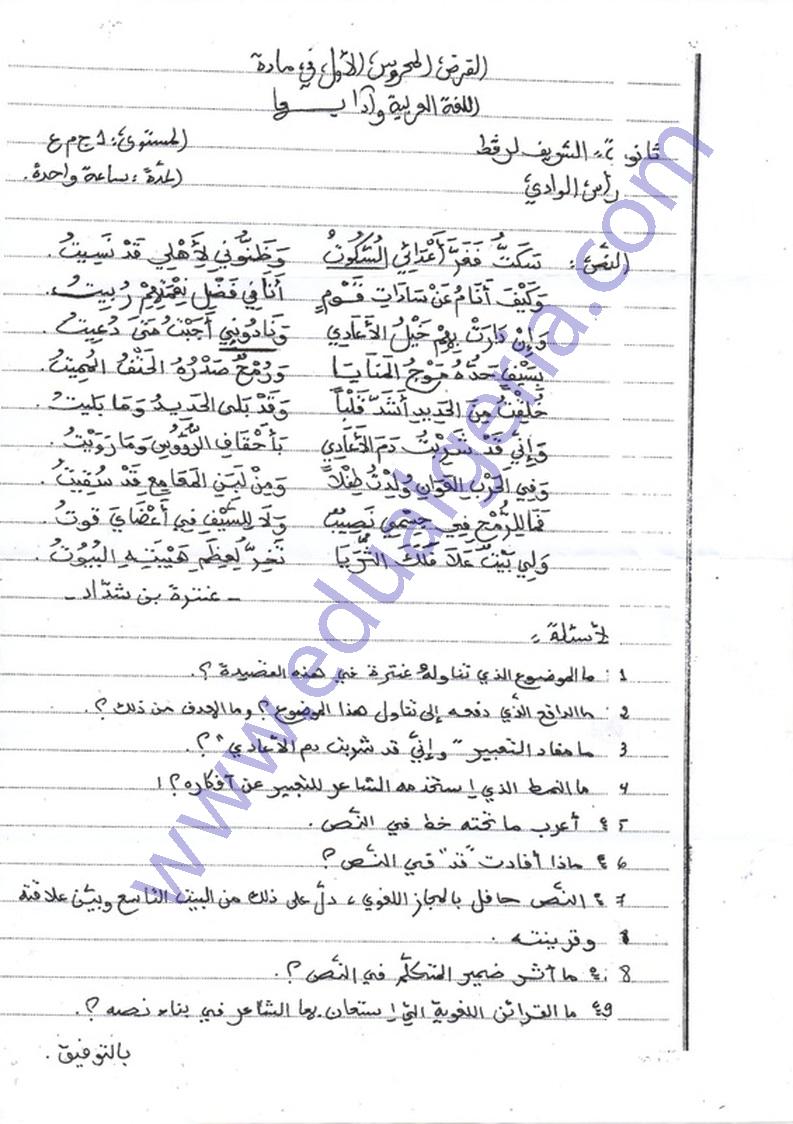 الفرض المحروس الأول في مادة
اللغة العربية وآدابها
ثانوية الشريف لرقط
المستوى: 1 ج م ع
رأس الوادي
المدة: ساعة واحدة.
النص: سَكَتُّ فَغَرَّ أَعْدَائِي السُّكُوتُ وَظَنُّونِي لِأَهْلِي قَدْ نَسِيتُ.
وَكَيْفَ أَنَامُ عَنْ سَادَاتِ قَوْمٍ أَنَا فِي فَضْلِ نِعْمَتِهِمْ رُبِيتُ.
وَإِنْ دَارَتْ بِهِمْ خَيْلُ الأَعَادِي وَنَادُونِي أَجَبْتُ مَتَى دُعِيتُ.
بِسَيْفٍ حَدُّهُ مَوْجُ المَنَايَا وَرُمْحٌ صَدْرُهُ الحَتْفُ المُمِيتُ.
خُلِقْتُ مِنَ الحَدِيدِ أَشَدَّ قَلْباً وَقَدْ بَلَى الحَدِيدُ وَمَا بَلِيتُ.
وَإِنِّي قَدْ شَرِبْتُ دَمَ الأَعَادِي بِأَحْقَافِ الرُّؤُوسِ وَمَا رَوِيتُ.
وَفِي الحَرْبِ العَوَانِ وُلِدْتُ طِفْلاً وَمِنْ لَبَنِ المَعَامِعِ قَدْ سُقِيتُ.
فَمَا لِلرُّمْحِ فِي جِسْمِي نَصِيبٌ وَلَا لِلسَّيْفِ فِي أَعْضَايَ قُوتُ.
وَلِي بَيْتٌ عَلَا فَلَكَ الثُّرَيَّا تَخِرُّ لِعِظَمِ هَيْبَتِهِ البُيُوتُ.
- عنترة بن شدّاد -
الأسئلة:
1 : ما الموضوع الذي تناوله عنترة في هذه القصيدة؟.
2 ما الدافع الذي دفعه إلى تناول هذا الموضوع؟ وما الهدف من ذلك؟.
3 ما مفاد التعبير "وإنّي قد شربت دم الأعادي"؟.
4 ما النمط الذي إستخدمه الشاعر للتعبير عن أفكاره؟!
5 : أعرب ما تحته خط في النّص.
6 : ماذا أفادت "قد" في النّص؟
7 : النّص حافل بالمجاز اللغوي، دلّ على ذلك من البيت التاسع وبيّن علاقته
وقرينته.
8 : ما أثر ضمير المتكلّم في النّص؟.
9 : ما القرائن اللغوية التي إستعان بها الشاعر في بناء نصه؟.
بالتوفيق.
www.edualgeria.com